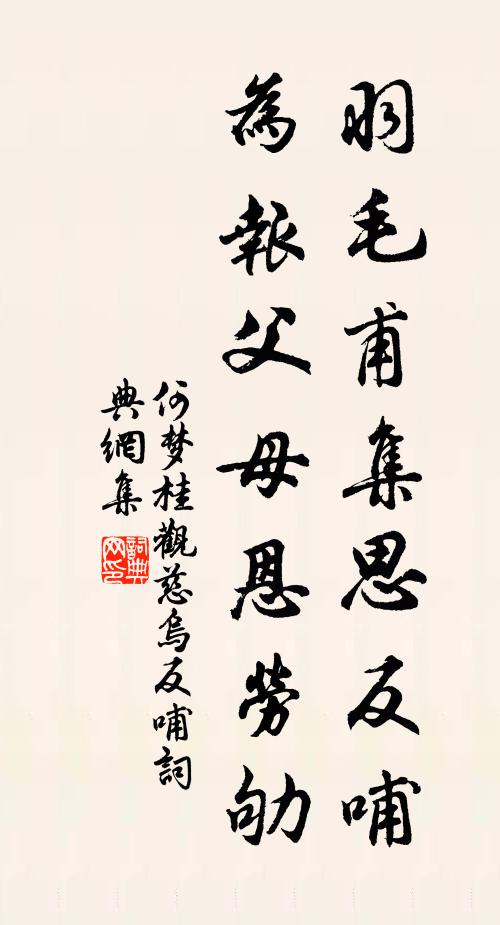 羽毛甫集思反哺
為報父母恩勞劬
何梦桂觀慈烏反哺詞
典網集
詞典网印